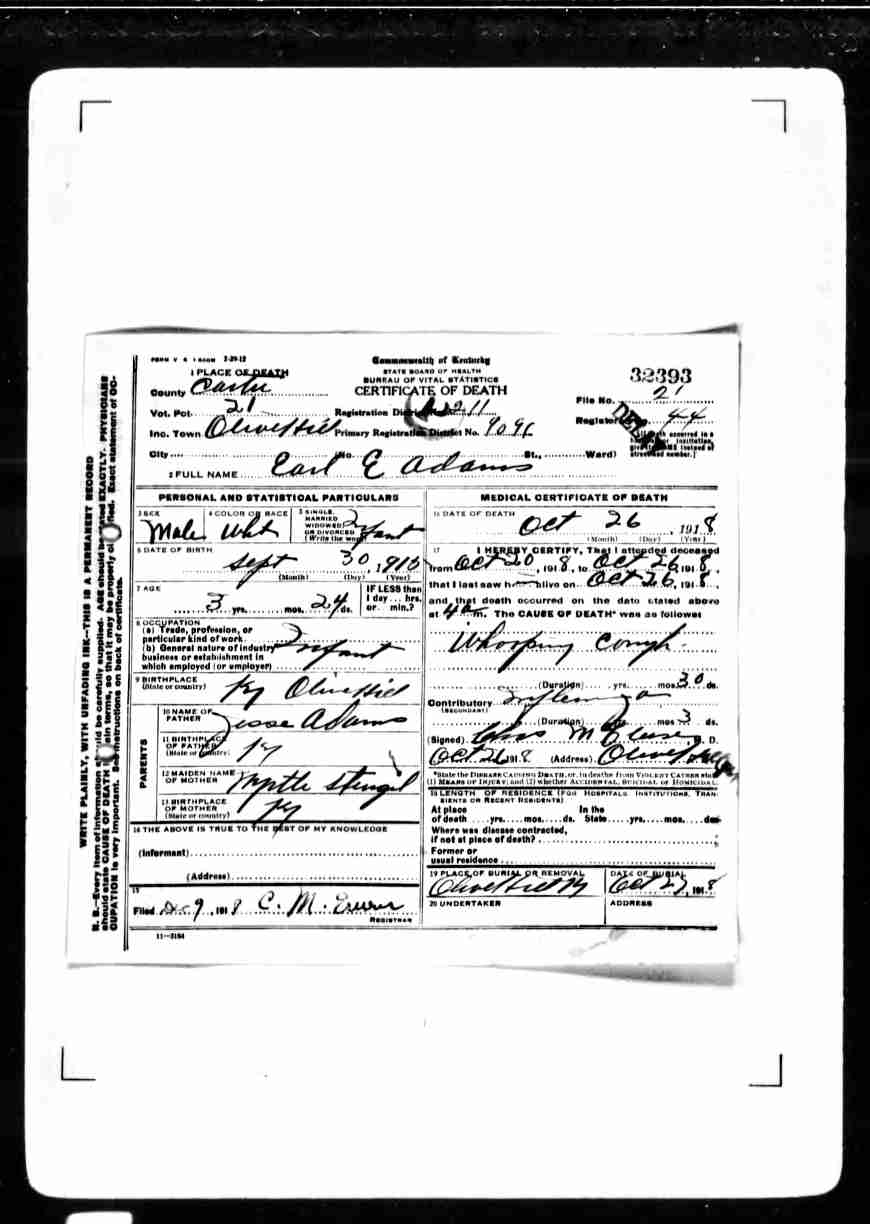 FORM V. S. 1 500M 2-29-12
Commonwealth of Kentucky
STATE BOARD OF HEALTH
BUREAU OF VITAL STATISTICS
CERTIFICATE OF DEATH
32393
1 PLACE OF DEATH
County Carter
File No. 21
Vot. Pct. 21 Registration District No. 211
Registered No. 44
Inc. Town Olive Hill Primary Registration District No. 9096
[If death occurred in a hospital or institution, give its NAME instead of street and number.]
City (No. St., Ward)
2 FULL NAME Earl E Adams
PERSONAL AND STATISTICAL PARTICULARS
3 SEX Male
4 COLOR OR RACE Wht
5 SINGLE, MARRIED WIDOWED OR DIVORCED (Write the word) Infant
6 DATE OF BIRTH Sept 30, 1915
(Month) (Day) (Year)
7 AGE 3 yrs. mos. 24 ds.
IF LESS than 1 day ... hrs. or min.?
8 OCCUPATION
(a) Trade, profession, or particular kind of work
(b) General nature of industry business or establishment in which employed (or employer) Infant
9 BIRTHPLACE (State or country) Ky Olive Hill
PARENTS
10 NAME OF FATHER Jesse Adams
11 BIRTHPLACE OF FATHER (State or country) Ky
12 MAIDEN NAME OF MOTHER Myrtle Stengel
13 BIRTHPLACE OF MOTHER (State or country) Ky
14 THE ABOVE IS TRUE TO THE BEST OF MY KNOWLEDGE
(Informant)
(Address)
15
Filed Dec 9, 1918 C. M.
REGISTRAR
11-3184
MEDICAL CERTIFICATE OF DEATH
16 DATE OF DEATH Oct 26, 1918
(Month) (Day) (Year)
17 I HEREBY CERTIFY, That I attended deceased
from Oct 20, 1918, to Oct 26, 1918,
that I last saw h alive on Oct 26, 1918,
and that death occurred on the date stated above
at 4 a m. The CAUSE OF DEATH* was as follows:
Whooping cough
(Duration) yrs. mos. 30 ds.
Contributory Influenza
(SECONDARY)
(Duration) yrs. mos 3 ds.
(Signed) M. D.
Oct 26 1918 (Address) Olive Hill
*State the DISEASE CAUSING DEATH, or, in deaths from VIOLENT CAUSES state (1) MEANS OF INJURY; and (2) whether ACCIDENTAL, SUICIDAL or HOMICIDAL.
18 LENGTH OF RESIDENCE (FOR HOSPITALS, INSTITUTIONS, TRANSIENTS OR RECENT RESIDENTS)
At place of death yrs. mos. ds. In the State yrs. mos. ds.
Where was disease contracted, if not at place of death?
Former or usual residence
19 PLACE OF BURIAL OR REMOVAL Olive Hill Ky
DATE OF BURIAL Oct 27, 1918
20 UNDERTAKER
ADDRESS
WRITE PLAINLY, WITH UNFADING INK—THIS IS A PERMANENT RECORD
N. B.—Every item of information should be carefully supplied. AGE should be stated EXACTLY. PHYSICIANS
should state CAUSE OF DEATH in plain terms, so that it may be properly classified. Exact statement of OC-
CUPATION is very important. See instructions on back of certificate.